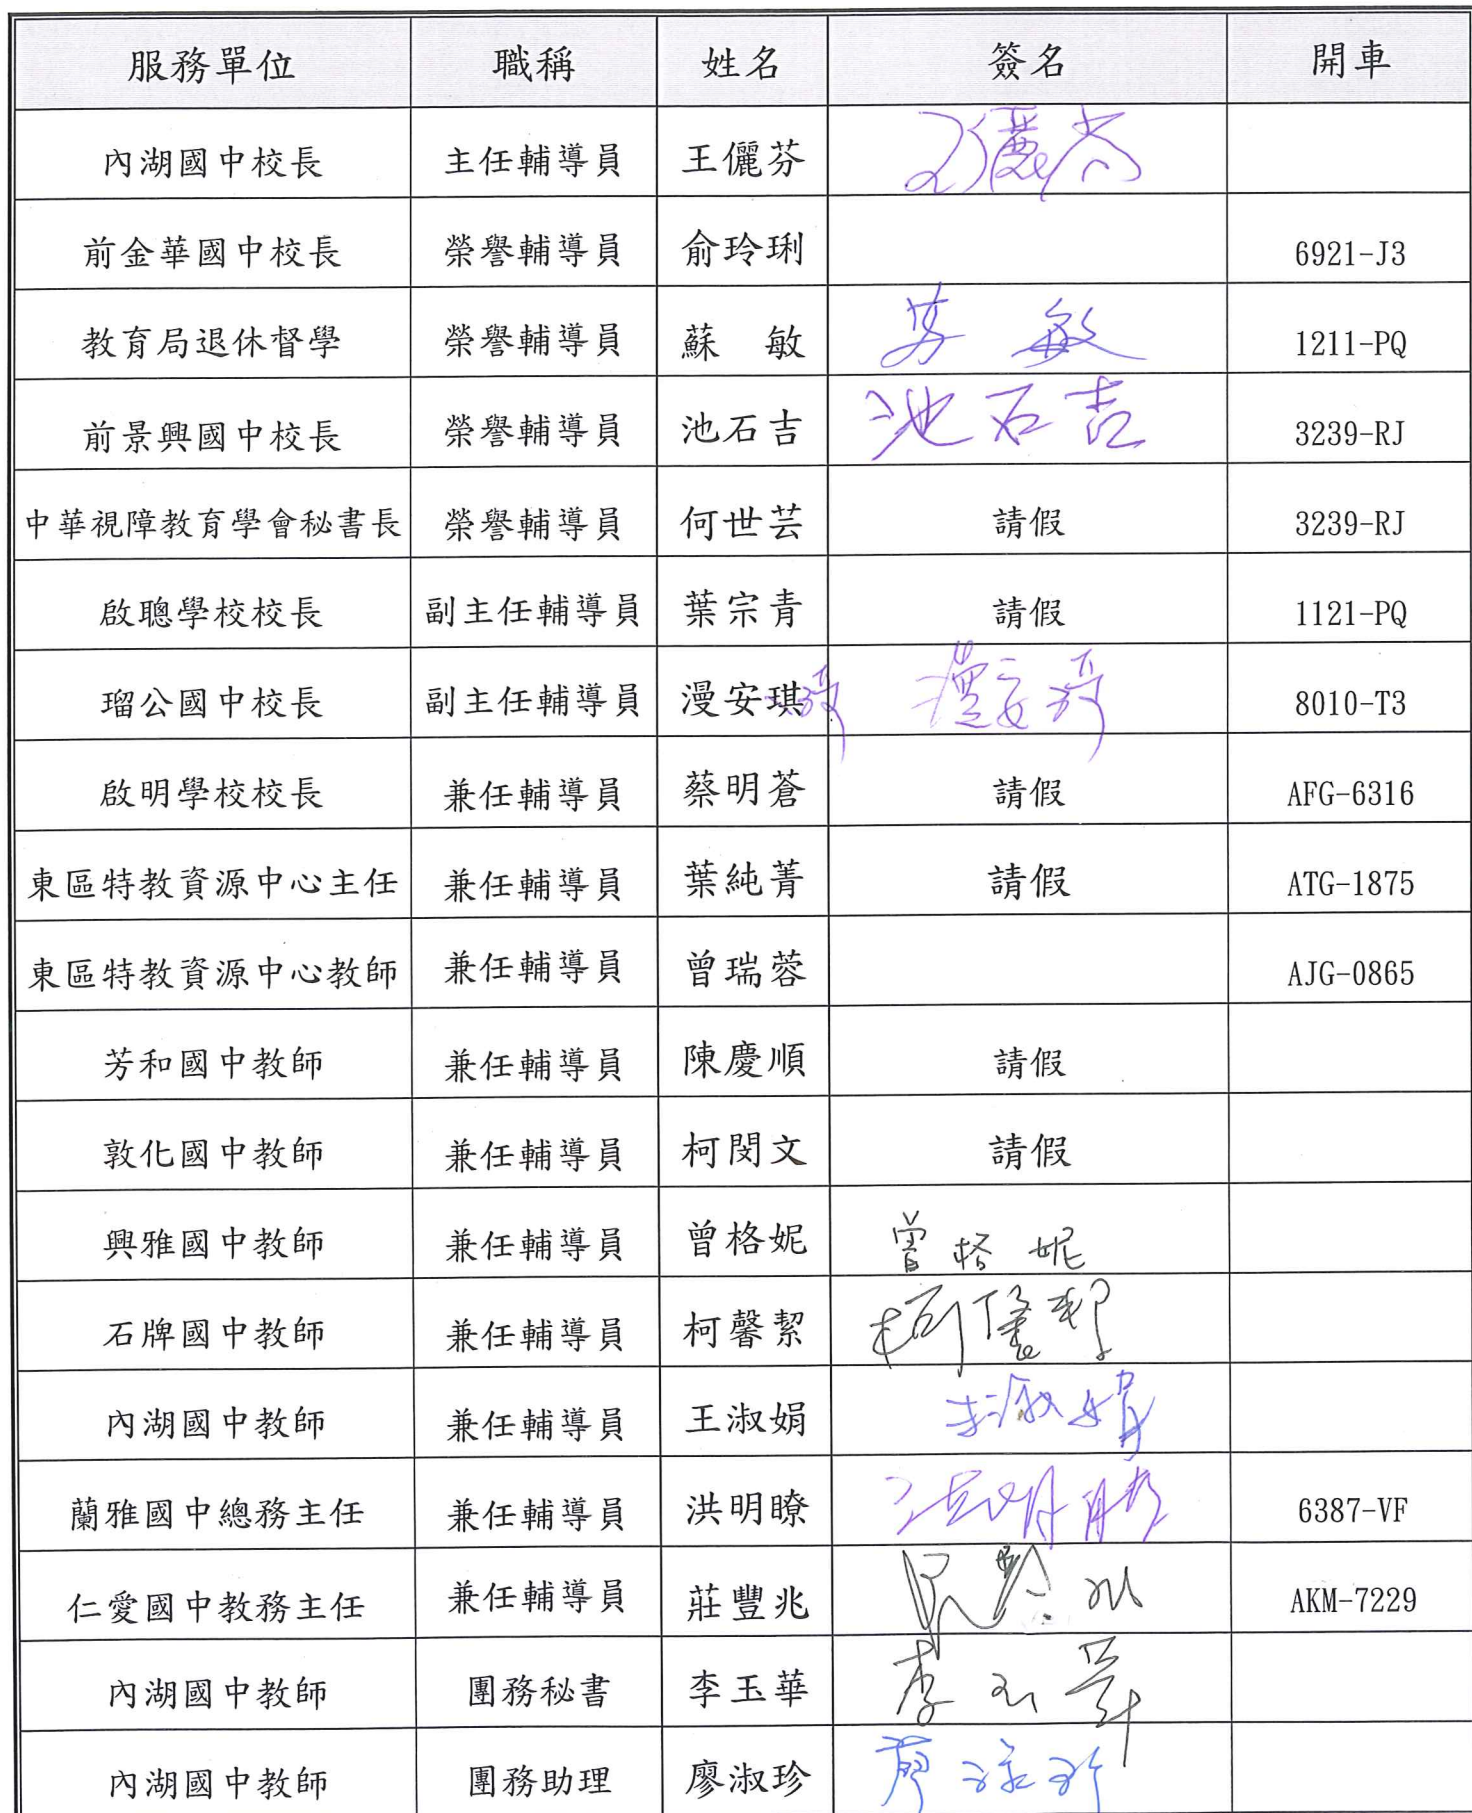 服務單位 職稱 姓名 簽名 開車
內湖國中校長 主任輔導員 王儷芬 王儷芬
前金華國中校長 榮譽輔導員 俞玲琍 6921-J3
教育局退休督學 榮譽輔導員 蘇 敏 苏 敏 1211-PQ
前景興國中校長 榮譽輔導員 池石吉 池石吉 3239-RJ
中華視障教育學會秘書長 榮譽輔導員 何世芸 請假 3239-RJ
啟聰學校校長 副主任輔導員 葉宗青 請假 1121-PQ
瑠公國中校長 副主任輔導員 漫安琪 8010-T3
啟明學校校長 兼任輔導員 蔡明蒼 請假 AFG-6316
東區特教資源中心主任 兼任輔導員 葉純菁 請假 ATG-1875
東區特教資源中心教師 兼任輔導員 曾瑞蓉 AJG-0865
芳和國中教師 兼任輔導員 陳慶順 請假
敦化國中教師 兼任輔導員 柯閔文 請假
興雅國中教師 兼任輔導員 曾格妮 曾格妮
石牌國中教師 兼任輔導員 柯馨絜
內湖國中教師 兼任輔導員 王淑娟 王淑娟
蘭雅國中總務主任 兼任輔導員 洪明暸 6387-VF
仁愛國中教務主任 兼任輔導員 莊豐兆 AKM-7229
內湖國中教師 團務秘書 李玉華 李玉華
內湖國中教師 團務助理 廖淑珍 廖淑珍